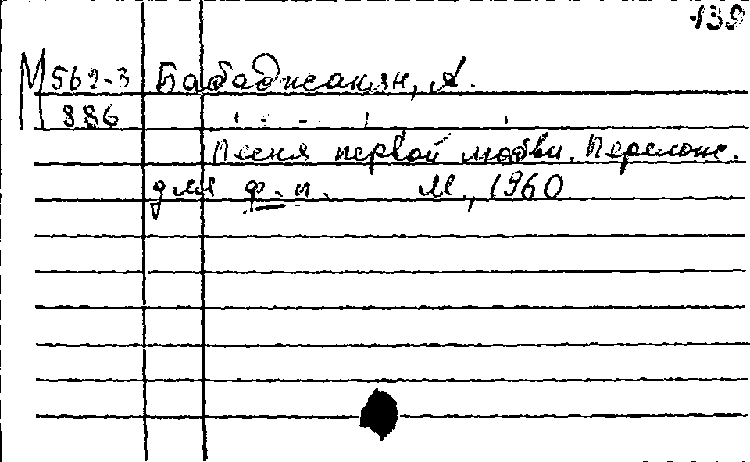 139
М 562-3 Бабаджанян, А.
886
Песня первой любви. Перелож.
для ф.-п. М., 1960